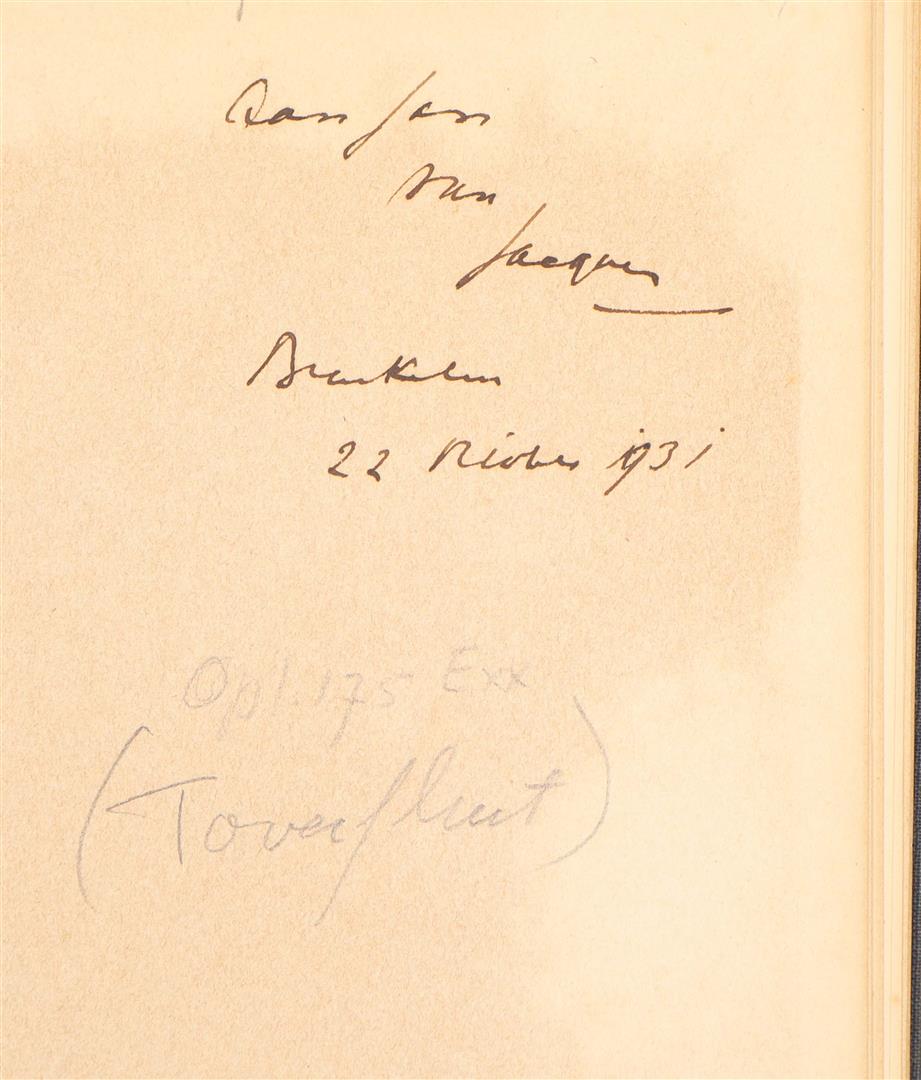 Aan Jan
van
Jacques
Breukelen
22 October 1931
Opl. 175 Exx
(Toverfluit)